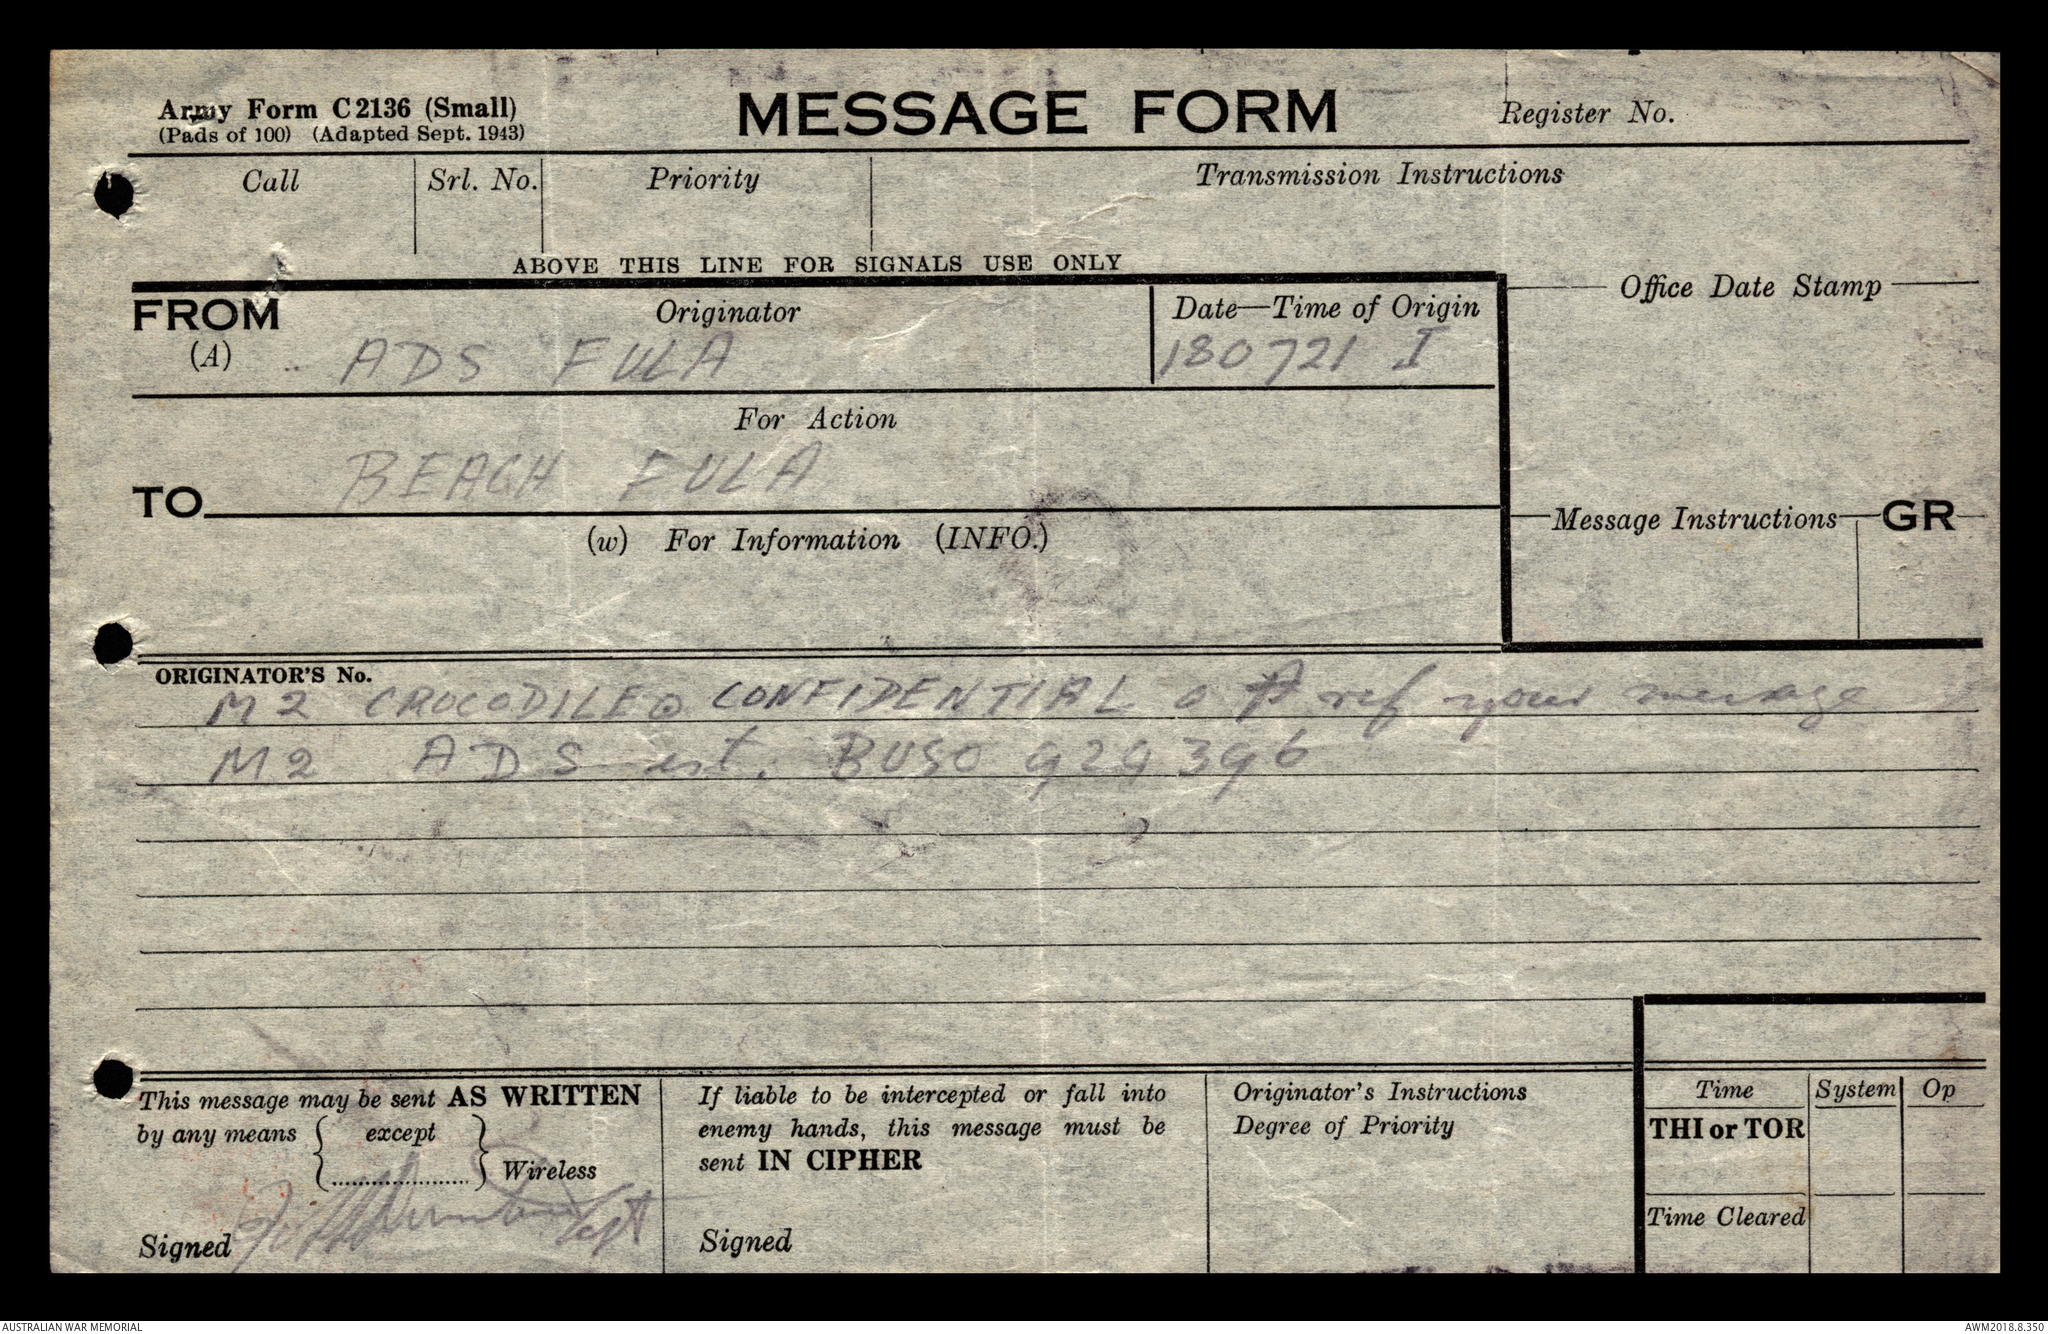 Army Form C2136 (Small)
(Pads of 100) (Adapted Sept. 1943)
MESSAGE FORM
Register No.
Call
Srl. No.
Priority
Transmission Instructions
ABOVE THIS LINE FOR SIGNALS USE ONLY
FROM
(A)
Originator
ADS FULA
Date—Time of Origin
180721 I
Office Date Stamp
For Action
BEACH FULA
TO
(w) For Information (INFO.)
Message Instructions
GR
ORIGINATOR'S No.
M2 CROCODILE o CONFIDENTIAL o ref your message
M2 ADS est. BUSO 929396
This message may be sent AS WRITTEN
by any means { except
} Wireless
Signed
Capt
If liable to be intercepted or fall into
enemy hands, this message must be
sent IN CIPHER
Signed
Originator's Instructions
Degree of Priority
Time
System
Op
THI or TOR
Time Cleared
AUSTRALIAN WAR MEMORIAL
AWM2018.8.350